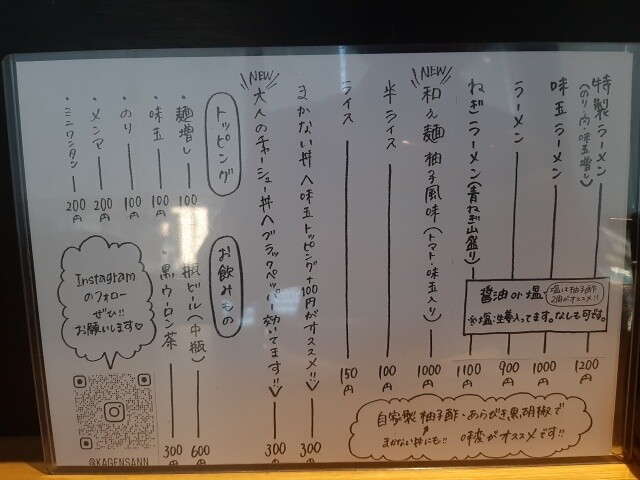 特製ラーメン
(のり・肉・味玉増し)
1200円
味玉ラーメン
1000円
ラーメン
900円
ねぎラーメン(青ねぎ山盛り)
1100円
醤油 or 塩
塩は柚子酢
2滴がオススメ!!
※塩:生姜入ってます。なしも可です。
NEW
和え麺 柚子風味(トマト・味玉入り)
1000円
半ライス
100円
ライス
150円
まかない丼〈味玉トッピング+100円がオススメ!!〉
300円
NEW
大人のチャーシュー丼〈ブラックペッパー効いてます!!〉
300円
トッピング
・麺増し 100円
・味玉 100円
・のり 100円
・メンマ 200円
・ミニワンタン 200円
お飲みもの
・瓶ビール(中瓶) 600円
・黒ウーロン茶 300円
自家製 柚子酢・あらびき黒胡椒で
まかない丼にも!! 味変がオススメです!!
Instagram
のフォロー
ぜひ!!
お願いします♡
@KAGENSANN